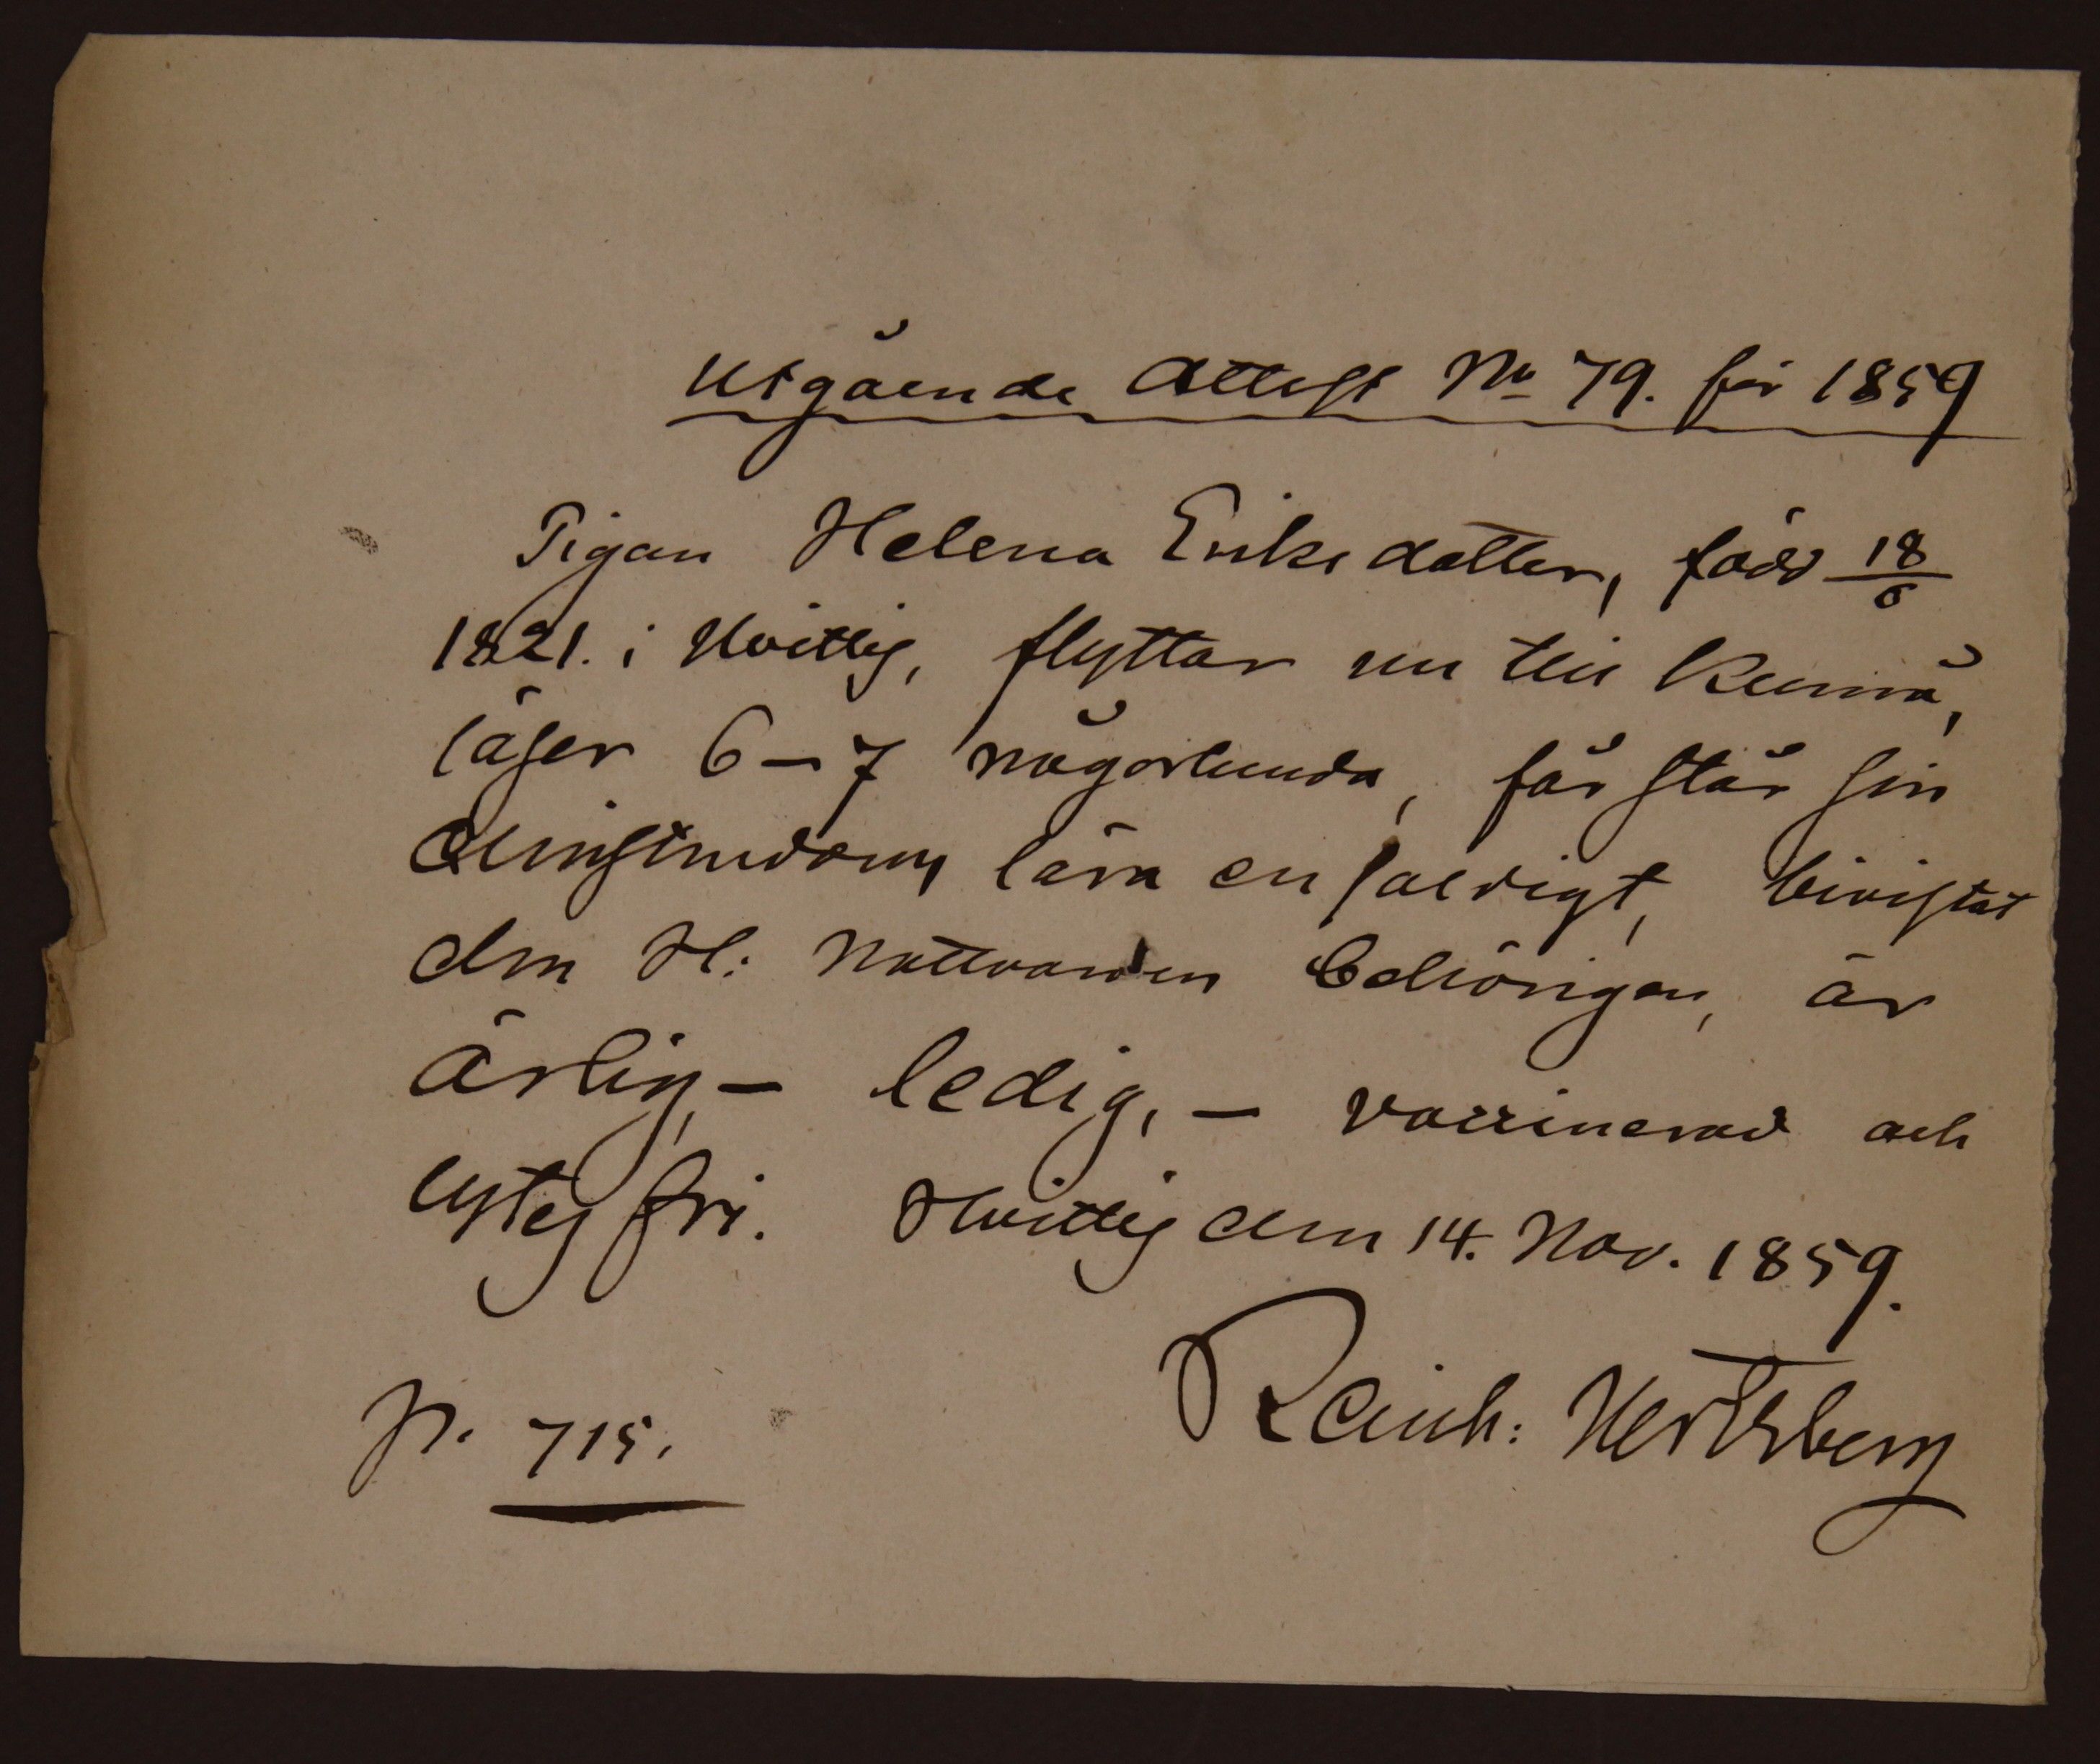 Utgående Attest No 79. för 1859
Pigan Helena Eriksdotter, född 18/6
1821. i Hvittis, flyttar nu till Kumå,
läser 6–7 någorlunda, förstår sin
Christendoms lära enfaldigt, bivistat
den H: Nattvarden behörigen, är
ärlig, – ledig, – vaccinerad och
lytesfri. Hvittis den 14. Nov. 1859.
Reinh: Hertzberg
p. 715.